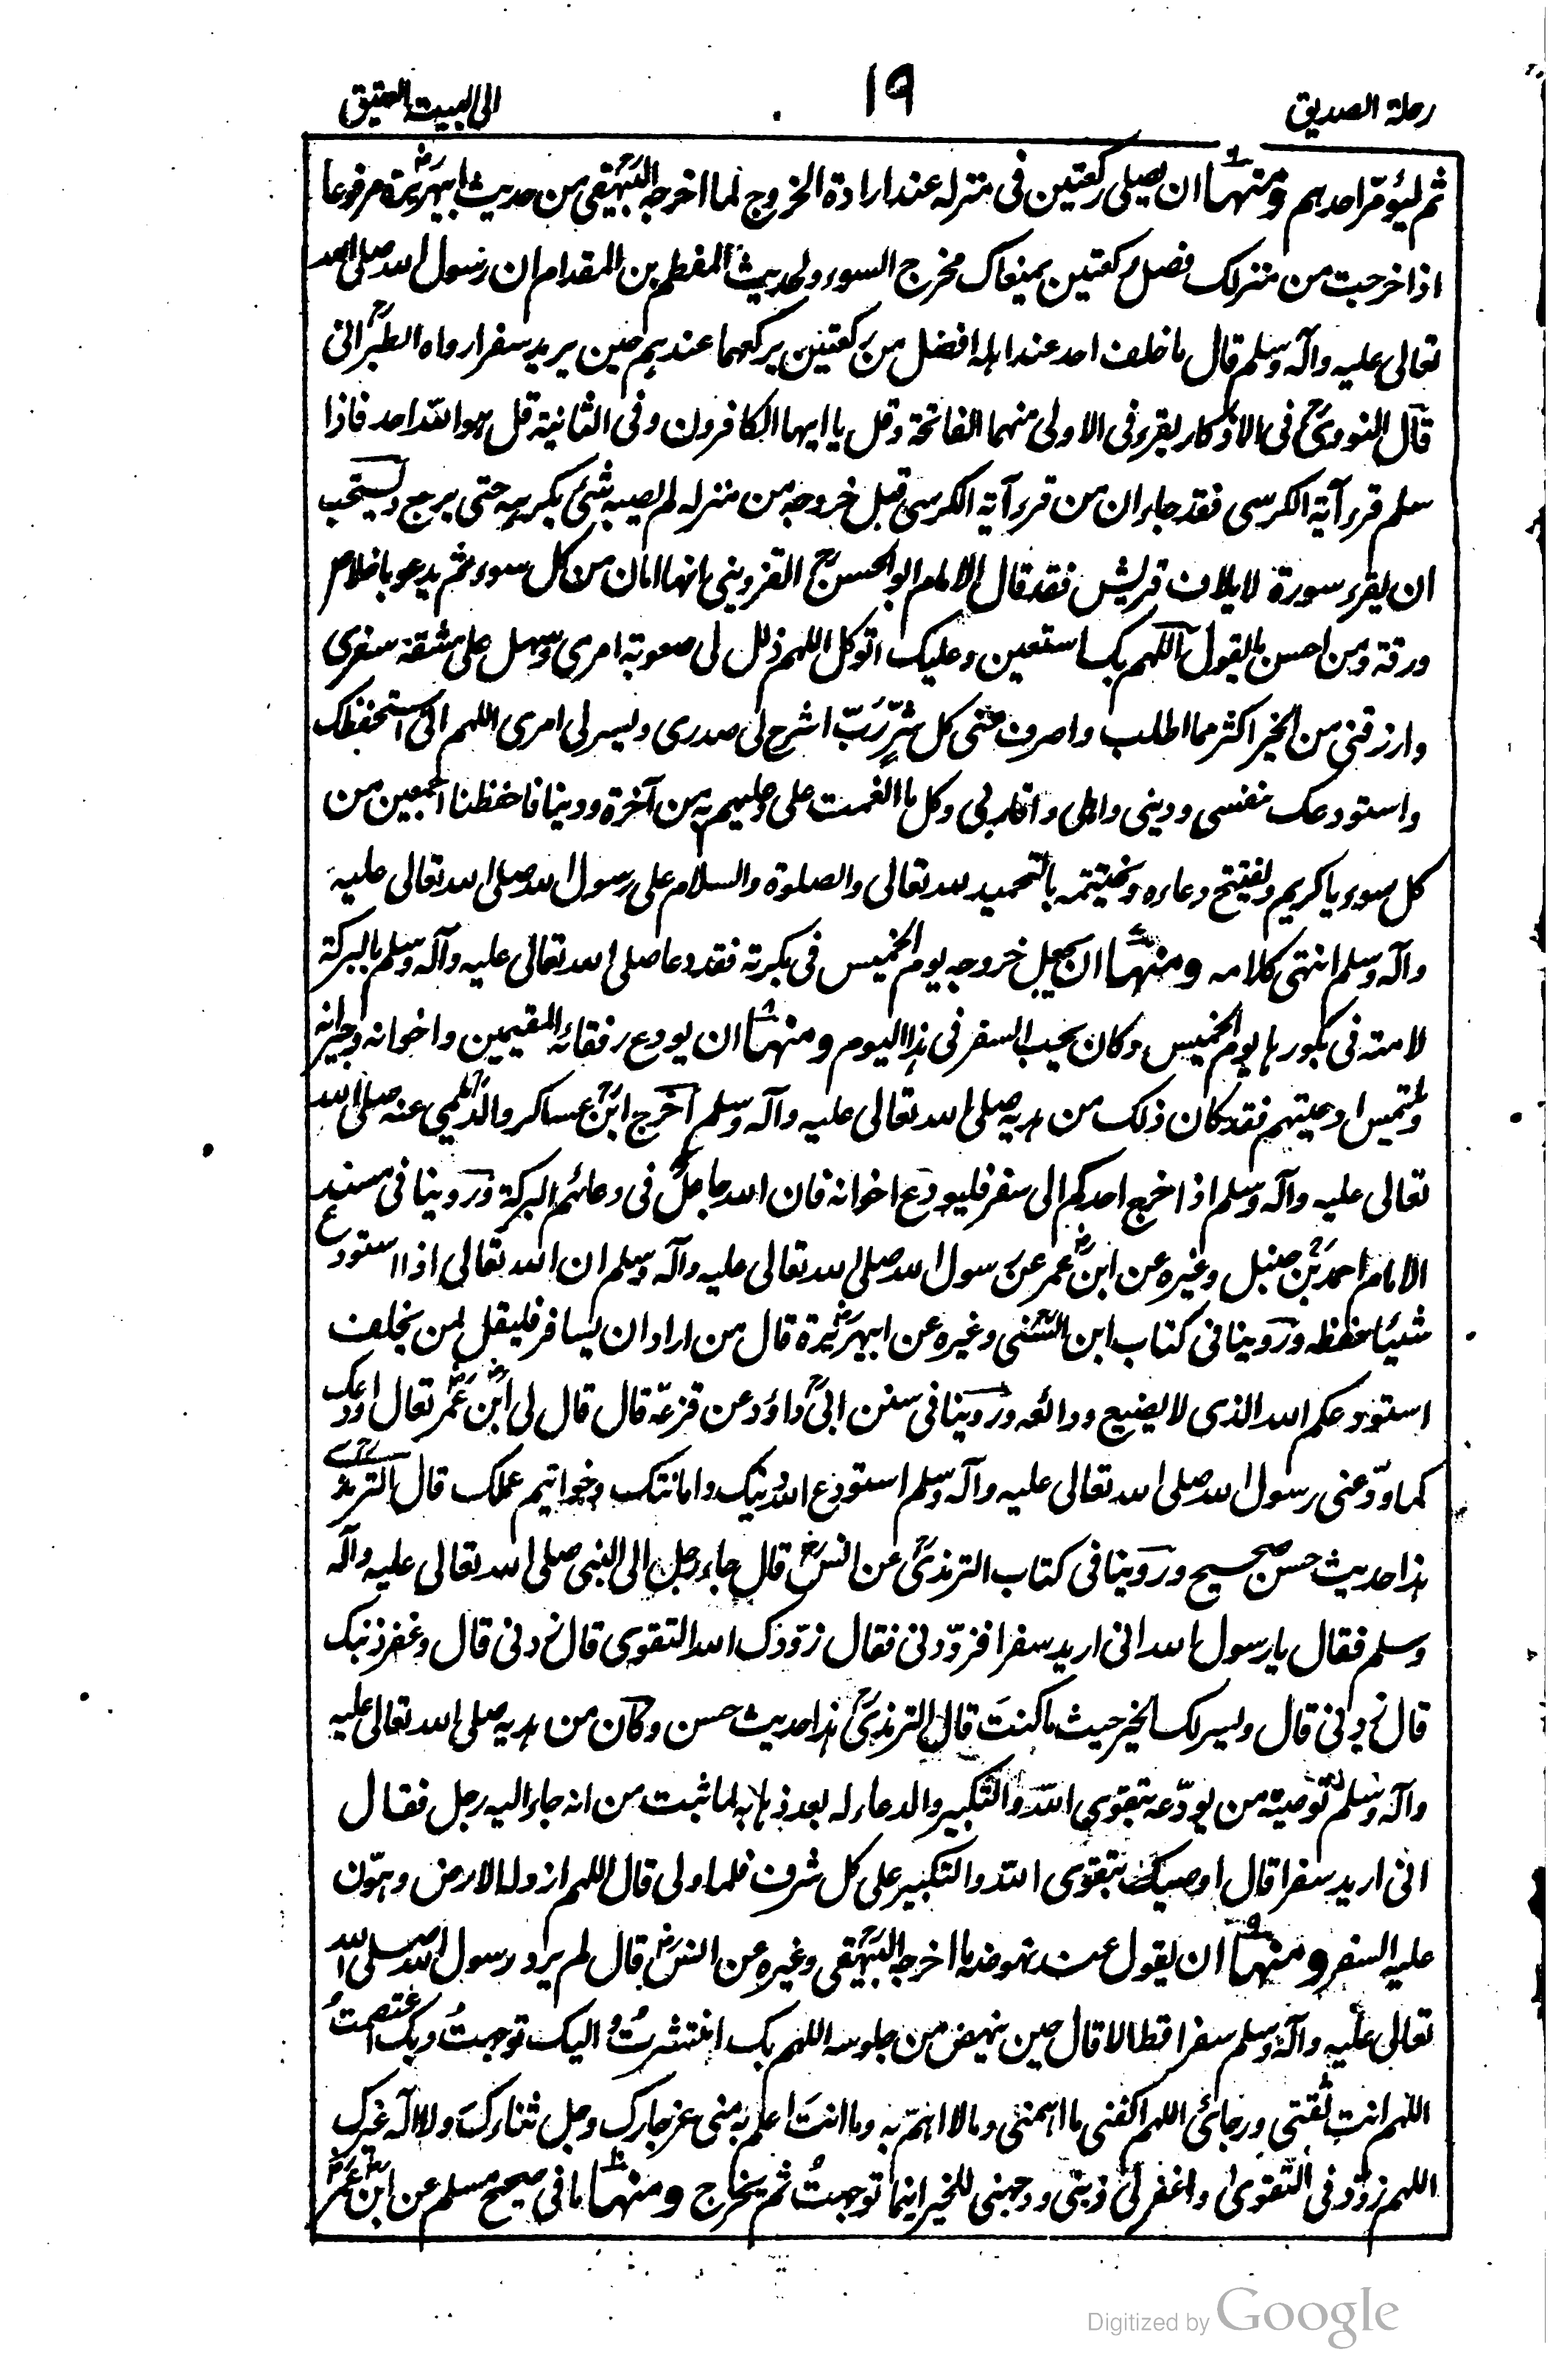 رحلة الصديق
١٩
الى البيت العتيق
ثم ليؤمّر احدهم ومنها ان يصلى ركعتين فى منزله عند ارادة الخروج لما اخرجه البيهقى من حديث ابيهريرة مرفوعا
اذا خرجت من منزلك فصل ركعتين يمنعاك مخرج السوء ولحديث المطعم بن المقدام ان رسول الله صلى الله
تعالى عليه وآله وسلم قال ما خلف احد عند اهله افضل من ركعتين يركعهما عندهم حين يريد سفرا رواه الطبرانى
قال النووى فى الاذكار يقرء فى الاولى منهما الفاتحة وقل يا ايها الكافرون وفى الثانية قل هو الله احد فاذا
سلم قرء آية الكرسى فقد جاء ان من قرء آية الكرسى قبل خروجه من منزله لم يصبه شئ يكرهه حتى يرجع ويستحب
ان يقرء سورة لايلاف قريش فقد قال الامام ابو الحسن القزوينى انها امان من كل سوء ثم يدعو باخلاص
ورقة ومن احسن ما يقول اللهم بك استعين وعليك اتوكل اللهم ذلل لى صعوبة امرى وسهل على مشقة سفرى
وارزقنى من الخير اكثر مما اطلب واصرف عنى كل شرّ رَبّ اشرح لى صدرى ويسر لى امرى اللهم انى استحفظك
واستودعك نفسى ودينى واهلى واقاربى وكل ما انعمت على وعليهم به من آخرة ودينا فاحفظنا اجمعين من
كل سوء يا كريم ويفتتح دعاءه ويختتمه بالتحميد لله تعالى والصلوة والسلام على رسول الله صلى الله تعالى عليه
وآله وسلم انتهى كلامه ومنها ان يجعل خروجه يوم الخميس فى بكرته فقد دعا صلى الله تعالى عليه وآله وسلم بالبركة
لامته فى بكورها يوم الخميس وكان يحب السفر فى هذا اليوم ومنها ان يودع رفقائه المقيمين واخوانه وجيرانه
ويلتمس ادعيتهم فقد كان ذلك من هديه صلى الله تعالى عليه وآله وسلم اخرج ابن عساكر والديلمى عنه صلى الله
تعالى عليه وآله وسلم اذا خرج احدكم الى سفر فليودع اخوانه فان الله جاعل فى دعائهم البركة وروينا فى مسند
الامام احمد بن حنبل وغيره عن ابن عمر عن رسول الله صلى الله تعالى عليه وآله وسلم ان الله تعالى اذا استودع
شيئا حفظه وروينا فى كتاب ابن السنى وغيره عن ابيهريرة قال من اراد ان يسافر فليقل لمن يخلف
استودعكم الله الذى لا يضيع ودائعه وروينا فى سنن ابى داؤد عن قزعة قال قال لى ابن عمر تعال اودعك
كما ودّعنى رسول الله صلى الله تعالى عليه وآله وسلم استودع الله دينك وامانتك وخواتيم عملك قال الترمذى
هذا حديث حسن صحيح وروينا فى كتاب الترمذى عن انس قال جاء رجل الى النبى صلى الله تعالى عليه وآله
وسلم فقال يا رسول الله انى اريد سفرا فزوّدنى فقال زوّدك الله التقوى قال زدنى قال وغفر ذنبك
قال زدنى قال ويسر لك الخير حيث ما كنتَ قال الترمذى هذا حديث حسن وكان من هديه صلى الله تعالى عليه
وآله وسلم توصية من يودّعه بتقوى الله والتكبير والدعاء له بعد ذهابه لما ثبت من انه جاء اليه رجل فقال
انى اريد سفرا قال اوصيك بتقوى الله والتكبير على كل شرف فلما ولى قال اللهم ازو له الارض وهوّن
عليه السفر ومنها ان يقول عند نهوضه ما اخرجه البيهقى وغيره عن انس قال لم يرد رسول الله صلى الله
تعالى عليه وآله وسلم سفرا قط الا قال حين ينهض من جلوسه اللهم بك انتشرتُ اليك توجهتُ وبك اعتصمتُ
اللهم انت ثقتى ورجائى اللهم اكفنى ما اهمنى وما لا اهتم به وما انتَ اعلم به منى عز جارك وجل ثناءكَ ولا اله غيرك
اللهم زوّدنى التقوى واغفر لى ذنبى ووجهنى للخير اينما توجهتُ ثم يخرج ومنها ما فى صحيح مسلم عن ابن عمر
Digitized by Google